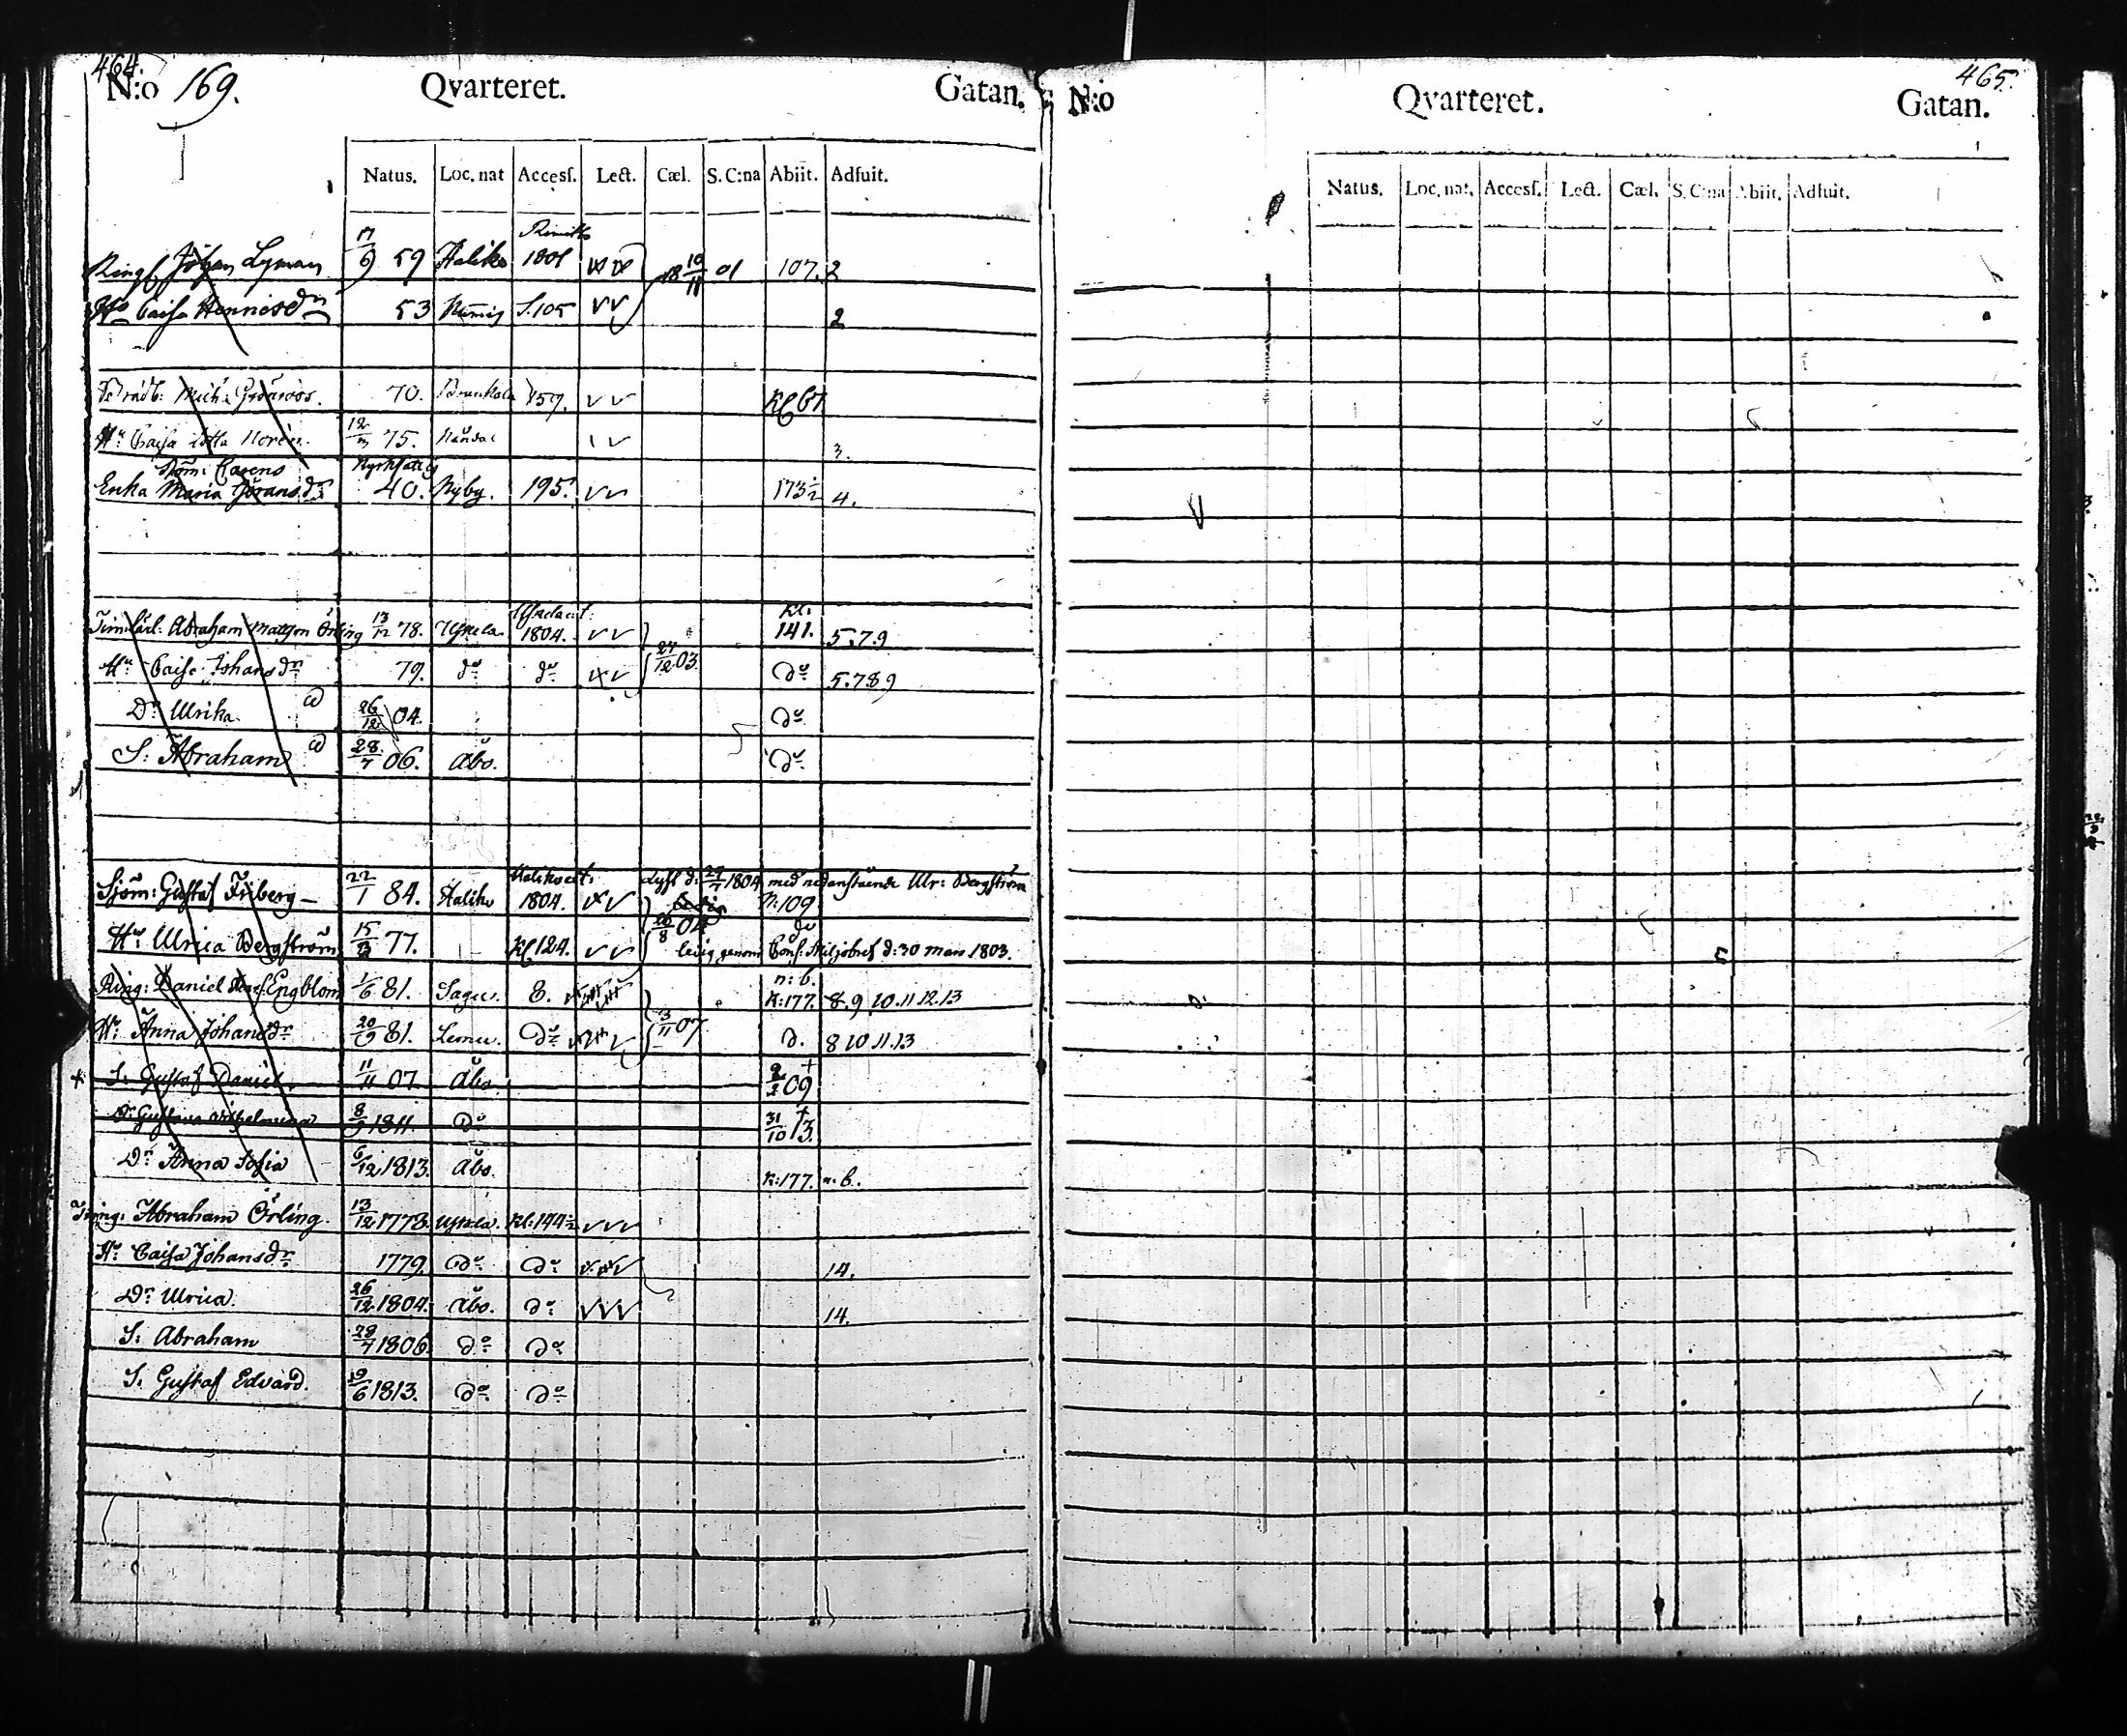 464.
N:o 169. Qvarteret. Gatan.
Natus. Loc. nat Access. Lect. Cæl. S. C:na Abiit. Adfuit.
Johan Lyman 17/9 59 Haliko 1801 18 19/11 01 107. 2
Hu Caisa Hennicsdr 53 S.105 2
Mich: Grönroos. 70. 159.
Hu Caisa Lotta Norén. 75. Nådal 3.
Enka Maria Jöransdr 40. Nyby. 195. 173½ 4.
Timkarl. Abraham Matsson Örling 13/12 78. Uskela 1804. 27/12 03. Kl: 141. 5.7.9
Hu Caisa Johansdr 79. do do do 5.7 8 9
Dr Ulrika. 26/12 04. do
S: Abraham 28/7 06. Åbo. do
Sjöm: Gustaf Friberg 22/1 84. Haliko 1804. Lyst d: 1804 med nedanstående Ulr: Bergström N: 109
Hu Ulrica Bergström 15/3 77. Kl 124. 26/8 04 do
ledig genom Cons: Skiljobref d: 30 Mars 1803.
Ring: Daniel Engblom 1/6 81. Sagu. 8. n: b. K: 177. 8.9 10.11 12.13
Hu Anna Johansdr 20/9 81. Lemu. do 3/11 07 d. 8 10 11.13
S: Gustaf Daniel. 11/11 07. Åbo 2/2 09 +
Dr Gustava Wilhelmina 8/9 1811. do 31/10 13. +
Dr Anna Sofia 6/12 1813. Åbo. K: 177. n. b.
Abraham Örling. 13/12 1778. Uskela. Kl: 144½
Hu Caisa Johansdr 1779. do do 14.
Dr Ulrica. 26/12 1804. Åbo. do 14.
S: Abraham 28/7 1806. do do
S: Gustaf Edvard. 19/6 1813. do do
465.
N:o Qvarteret. Gatan.
Natus. Loc. nat. Access. Lect. Cæl. S. C:na Abiit. Adfuit.